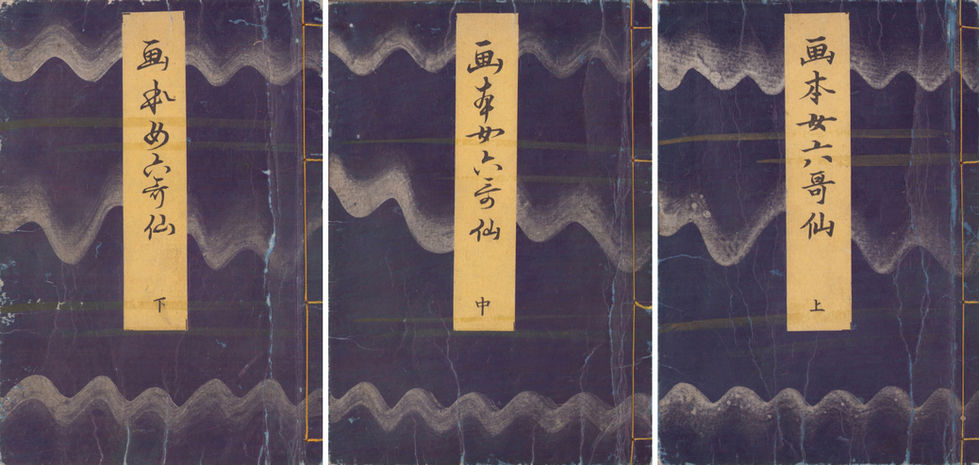 画本女六哥仙
上
画本女六哥仙
中
画本女六哥仙
下